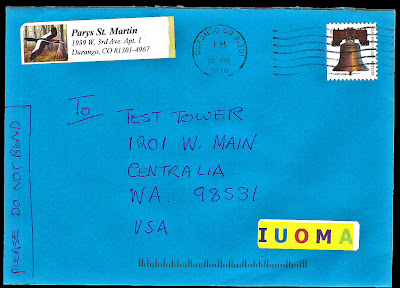 Parys St. Martin
1939 W. 3rd Ave. Apt. 1
Durango, CO 81301-4967
DURANGO CO 81301
1 M
2010
To
TEST TOWER
1201 W. MAIN
CENTRALIA
WA. 98531
USA
PLEASE DO NOT BEND
IUOMA